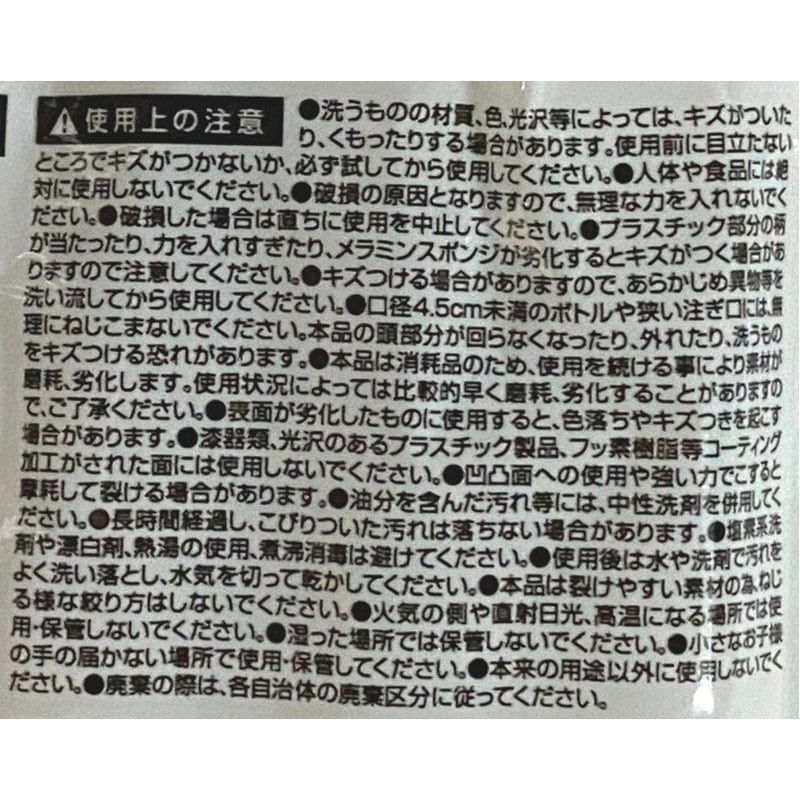 ⚠使用上の注意
●洗うものの材質、色、光沢等によっては、キズがついた
り、くもったりする場合があります。使用前に目立たない
ところでキズがつかないか、必ず試してから使用してください。●人体や食品には絶
対に使用しないでください。●破損の原因となりますので、無理な力を入れないでく
ださい。●破損した場合は直ちに使用を中止してください。●プラスチック部分の柄
が当たったり、力を入れすぎたり、メラミンスポンジが劣化するとキズがつく場合があ
りますので注意してください。●キズつける場合がありますので、あらかじめ異物等を
洗い流してから使用してください。●口径4.5cm未満のボトルや狭い注ぎ口には、無
理にねじこまないでください。本品の頭部分が回らなくなったり、外れたり、洗うもの
をキズつける恐れがあります。●本品は消耗品のため、使用を続ける事により素材が
磨耗、劣化します。使用状況によっては比較的早く磨耗、劣化することがありますの
で、ご了承ください。●表面が劣化したものに使用すると、色落ちやキズつきを起こす
場合があります。●漆器類、光沢のあるプラスチック製品、フッ素樹脂等コーティング
加工がされた面には使用しないでください。●凹凸面への使用や強い力でこすると
摩耗して裂ける場合があります。●油分を含んだ汚れ等には、中性洗剤を併用してく
ださい。●長時間経過し、こびりついた汚れは落ちない場合があります。●塩素系洗
剤や漂白剤、熱湯の使用、煮沸消毒は避けてください。●使用後は水や洗剤で汚れを
よく洗い落とし、水気を切って乾かしてください。●本品は裂けやすい素材の為、ねじ
る様な絞り方はしないでください。●火気の側や直射日光、高温になる場所では使
用・保管しないでください。●湿った場所では保管しないでください。●小さなお子様
の手の届かない場所で使用・保管してください。●本来の用途以外に使用しないでく
ださい。●廃棄の際は、各自治体の廃棄区分に従ってください。